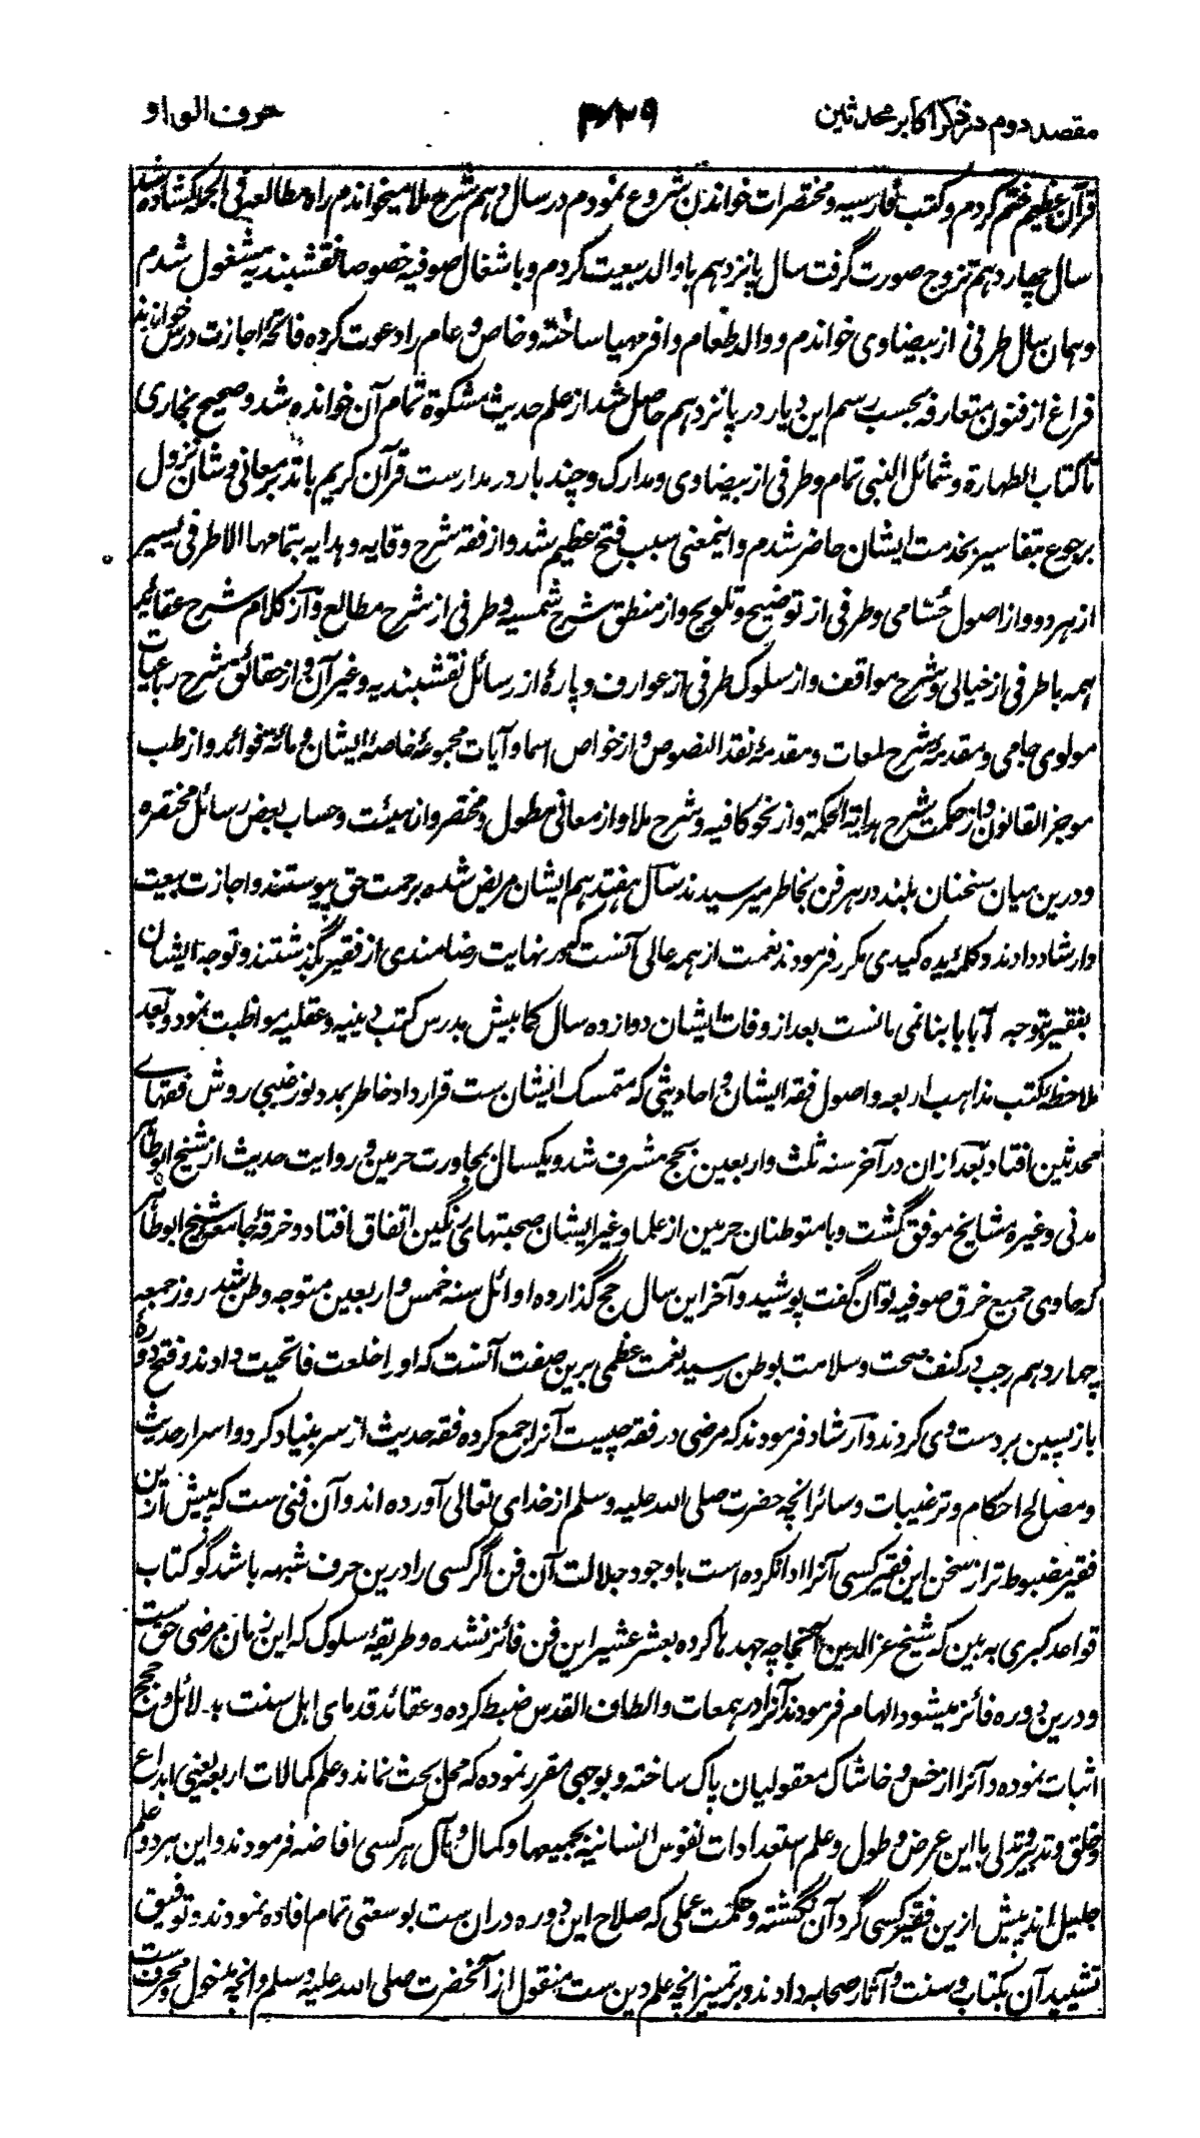 مقصد دوم در ذکر اکابر محدثین
۴۲۹
حرف الواو
قرآن عظیم ختم کردم و کتب فارسیه و مختصرات خواندن شروع نمودم در سال دهم شرح ملا میخواندم راه مطالعه فی الجمله کشاده شد
سال چهاردهم تزوج صورت گرفت سال پانزدهم با والد بیعت کردم و باشغال صوفیه خصوصا نقشبندیه مشغول شدم
و همان سال طرفی از بیضاوی خواندم و والد طعام وافر مهیا ساخته و خاص و عام را دعوت کرده فاتحهٔ اجازت درس خواندند
فراغ از فنون متعارفه بحسب رسم این دیار در پانزدهم حاصل شد از علم حدیث مشکوة تمام آن خوانده شد و صحیح بخاری
تا کتاب الطهارة و شمائل النبی تمام و طرفی از بیضاوی و مدارک و چند بار در مدارست قرآن کریم با تدبر معانی و شان نزول
برجوع بتفاسیر بخدمت ایشان حاضر شدم و اینمعنی سبب فتح عظیم شد و از فقه شرح وقایه و هدایه بتمامها الا طرفی یسیر
از هر دو و از اصول حسامی و طرفی از توضیح و تلویح و از منطق شرح شمسیه و طرفی از شرح مطالع و از کلام شرح عقائد
همه با طرفی از خیالی و شرح مواقف و از سلوک طرفی از عوارف و پارهٔ از رسائل نقشبندیه و غیر آن و از حقائق شرح رباعیات
مولوی جامی و مقدمهٔ شرح لمعات و مقدمهٔ نقد النصوص و از خواص اسما و آیات مجموعهٔ خاصهٔ ایشان و مائة فوائد و از طب
موجز القانون و از حکمت شرح هدایة الحکمة و از نحو کافیه و شرح ملا و از معانی مطول و مختصر و از هیئت و حساب بعض رسائل مختصره
و درین میان سخنان بلند در هر فن بخاطر میرسیدند سال هفتدهم ایشان مریض شده برحمت حق پیوستند و اجازت بیعت
و ارشاد دادند و کلمهٔ یده کیدی مکرر فرمودند نعمت از همه عالی آنست که در نهایت رضامندی از فقیر بگذشتند و توجه ایشان
بفقیر بتوجه آبا با بنا نمی مانست بعد از وفات ایشان دوازده سال کمابیش بدرس کتب دینیه و عقلیه مواظبت نمود و بعد
ملاحظهٔ کتب مذاهب اربعه و اصول فقه ایشان و احادیثی که متمسک ایشان ست قرارداد خاطر بمدد نور غیبی روش فقهای
محدثین افتاد بعد ازان در آخر سنه ثلث و اربعین بحج مشرف شد و یکسال بمجاورت حرمین و روایت حدیث از شیخ ابوطاهر
مدنی و غیره مشایخ موفق گشت و با متوطنان حرمین از علما و غیر ایشان صحبتهای رنگین اتفاق افتاد و خرقهٔ جامعه شیخ ابوطاهر
که حاوی جمیع خرق صوفیه توان گفت پوشید و آخر این سال حج گذارده اوائل سنه خمس و اربعین متوجه وطن شد روز جمعه
چهاردهم رجب در کنف صحت و سلامت بوطن رسید نعمت عظمی برین صفت آنست که او را خلعت فاتحیت دادند و فتح دورهٔ
بازپسین بر دست وی کردند و ارشاد فرمودند که مرضی در فقه چیست آنرا جمع کرده فقه حدیث از سر بنیاد کرد و اسرار حدیث
و مصالح احکام و ترغیبات و سائر انچه حضرت صلی الله علیه وسلم از خدای تعالی آورده اند و آن فنی ست که پیش ازین
فقیر مضبوط تر از سخن این فقیر کسی آنرا ادا نکرده است باوجود جلالت آن فن اگر کسی را درین حرف شبهه باشد گو کتاب
قواعد کبری به بین که شیخ عز الدین آنجا چه جهدها کرده بعشر عشیر این فن فائز نشده و طریقهٔ سلوک که این زمان مرضی حق ست
و درین دوره فائز میشود الهام فرمودند آنرا در همعات و الطاف القدس ضبط کرده و عقائد قدمای اهل سنت بدلائل و حجج
اثبات نموده و آنرا از خس و خاشاک معقولیان پاک ساخته و بوجهی مقرر نموده که محل بحث نماند و علم کمالات اربعه یعنی ابداع
و خلق و تدبیر و تدلی با این عرض و طول و علم استعدادات نفوس انسانیه بجمیعها و کمال و مآل هر کسی افاضه فرمودند و این هر دو علم
جلیل اند پیش ازین فقیر کسی گرد آن نگشته و حکمت عملی که صلاح این دوره دران ست بوسعتی تمام افاده نمودند و توفیق
تشیید آن بکتاب و سنت و آثار صحابه دادند و بر تمییز انچه علم دین ست منقول از آنحضرت صلی الله علیه وسلم و انچه مدخول و محرف ست